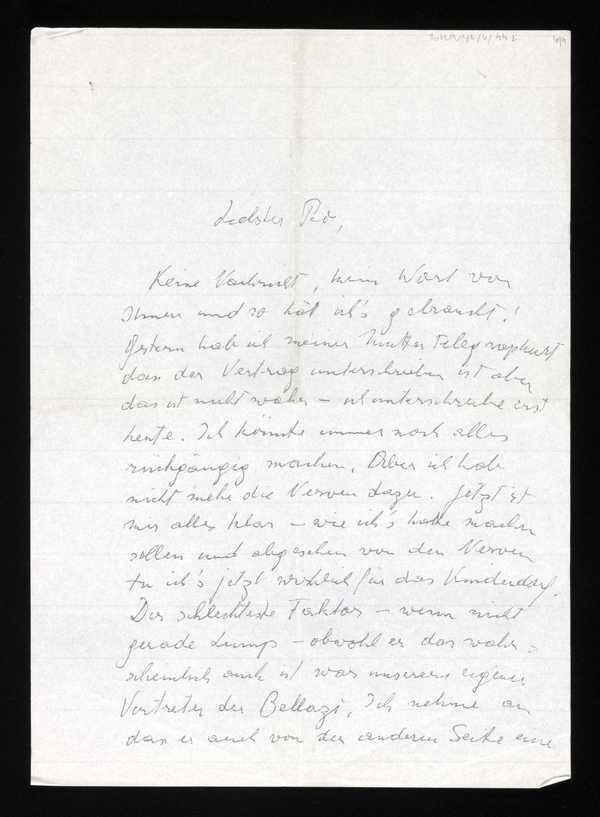 Liebster Pio,
Keine Nachricht, kein Wort von
Ihnen und so hät ich's gebraucht!
Gestern hab ich meiner Mutter telegraphiert
dass der Vertrag unterschrieben ist aber
das ist nicht wahr – ich unterschreibe erst
heute. Ich könnte immer noch alles
rückgängig machen. Aber ich hab
nicht mehr die Nerven dazu. Jetzt ist
mir alles klar – wie ich's hätte machen
sollen und abgesehen von den Nerven
tu ich's jetzt wirklich für das Kinderdorf.
Der schlechteste Faktor – wenn nicht
gerade Lump – obwohl er das wahr-
scheinlich auch ist war unserer eigener
Vertreter der Bellazi. Ich nehme an
dass er auch von der anderen Seite eine